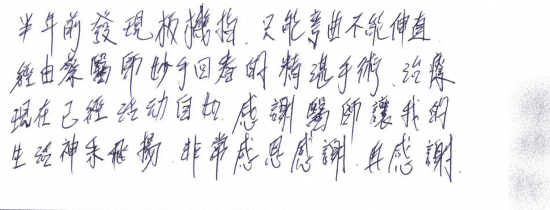 半年前發現板機指.只能彎曲不能伸直.
經由蔡醫師妙手回春的精進手術.治療
現在已經活動自如.感謝醫師讓我的
生活神采飛揚.非常感恩感謝.再感謝.